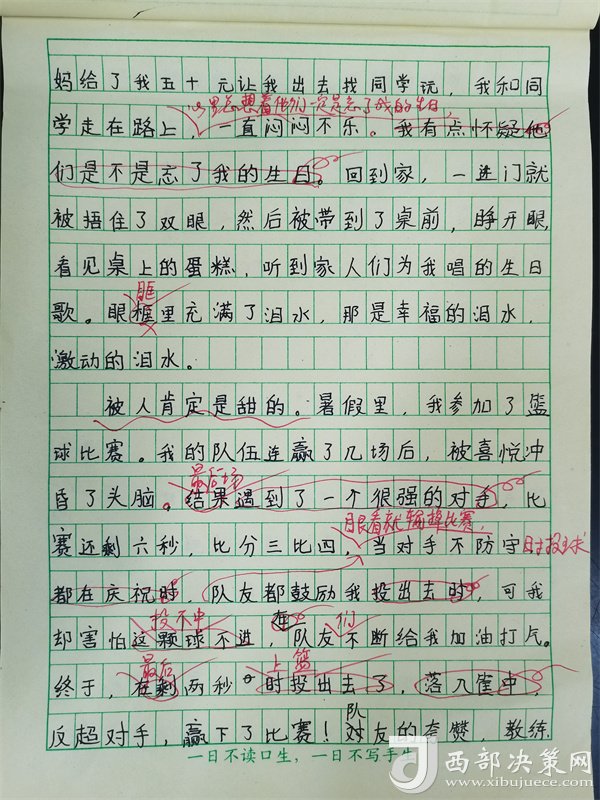 妈给了我五十元让我出去找同学玩，我和同
心里总想着他们一定是忘了我的生日，
学走在路上，一直闷闷不乐。我有点怀疑他
们是不是忘了我的生日。回到家，一进门就
被捂住了双眼，然后被带到了桌前，睁开眼，
看见桌上的蛋糕，听到家人们为我唱的生日
眶
歌。眼框里充满了泪水，那是幸福的泪水，
激动的泪水。
被人肯定是甜的。暑假里，我参加了篮
球比赛。我的队伍连赢了几场后，被喜悦冲
最后一场
昏了头脑。结果遇到了一个很强的对手，比
眼看着就输掉比赛，
赛还剩六秒，比分三比四，当对手不防守时投球
都在庆祝时，队友都鼓励我投出去时，可我
投不中 在 们
却害怕这颗球不进，队友不断给我加油打气。
最后 上篮
终于，在剩两秒时投出去了，落入筐中，
队
反超对手，赢下了比赛！对友的夸赞，教练
一日不读口生，一日不写手生
西部决策网
www.xibujuece.com